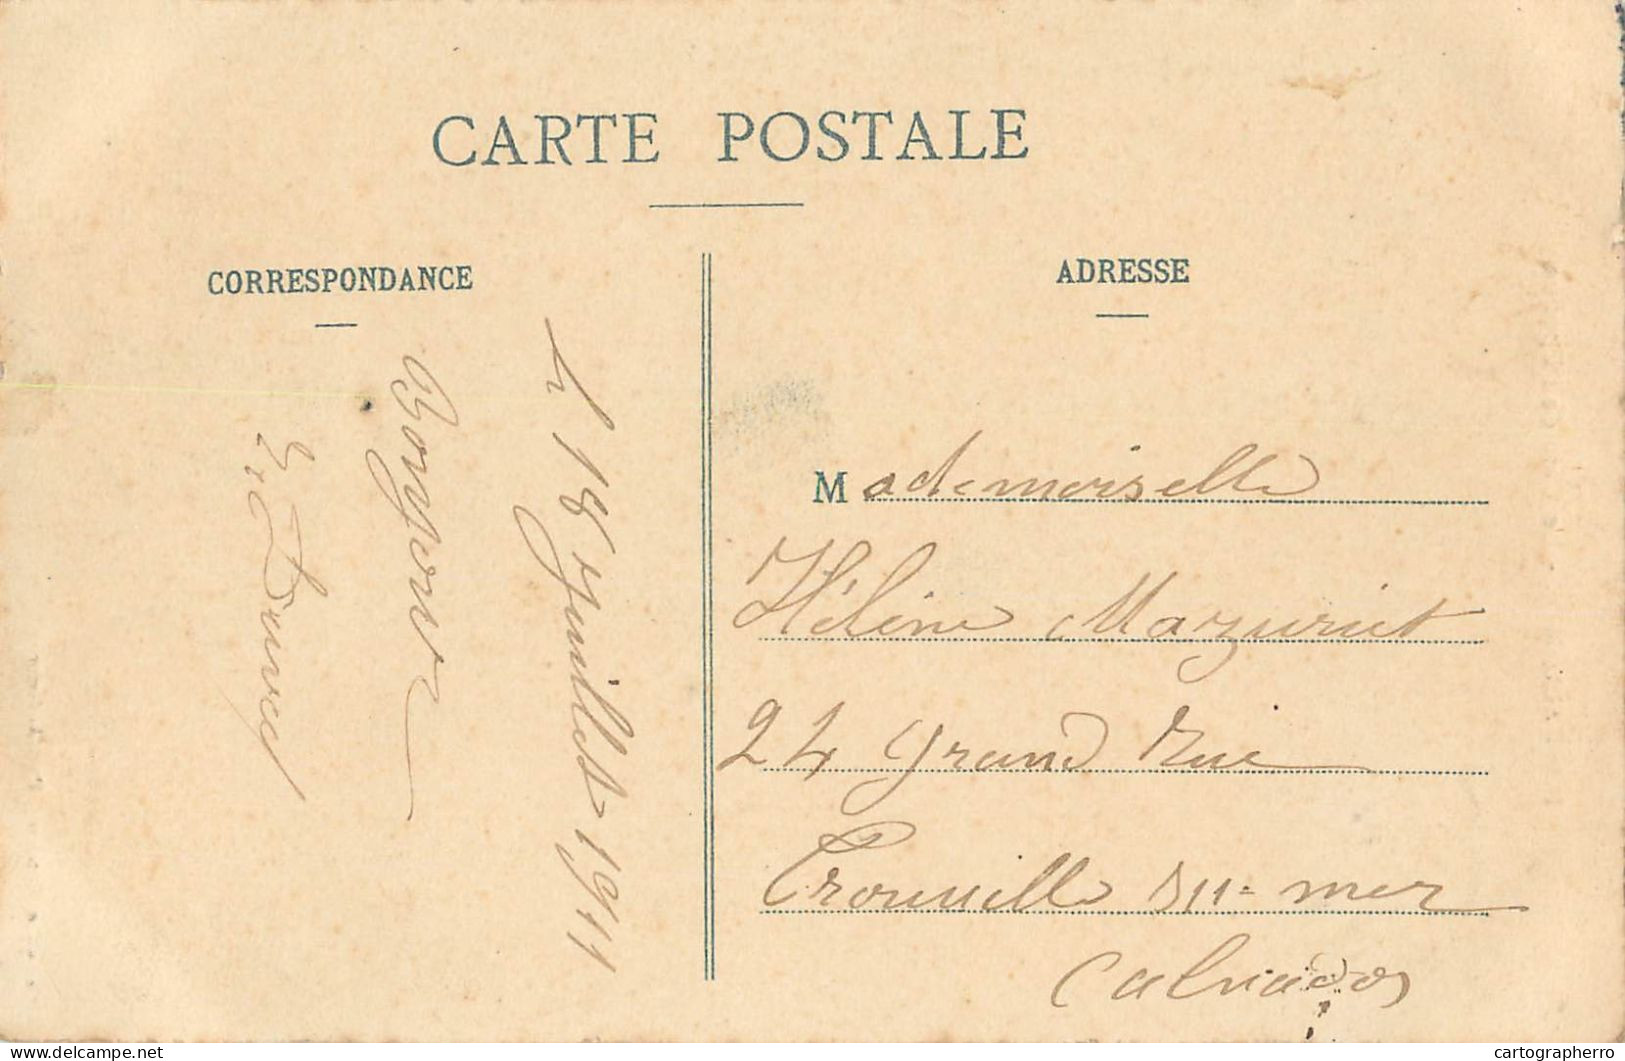 CARTE POSTALE
CORRESPONDANCE
ADRESSE
le 18 Juillet 1911
Bonjour
Mademoiselle
Hélène Mazuriet
24 grand Rue
Trouville sur-mer
Calvados
delcampe.net
cartographerro